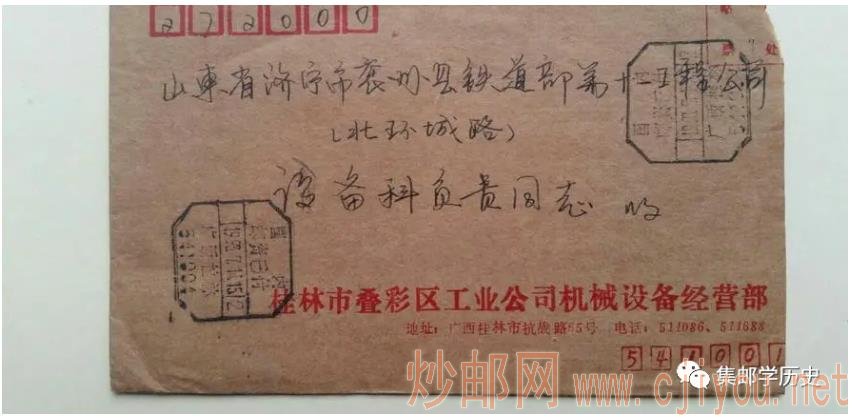 272000
集邮
票 处
山东省济宁市兖州县铁道部第十二工程公司
(北环城路)
设备科负责同志 收
国内
邮资已付
541001
桂林市叠彩区工业公司机械设备经营部
地址:广西桂林市抗战路65号 电话:511086、511688
541001
集邮学历史
炒邮网 www.cjiyou.net